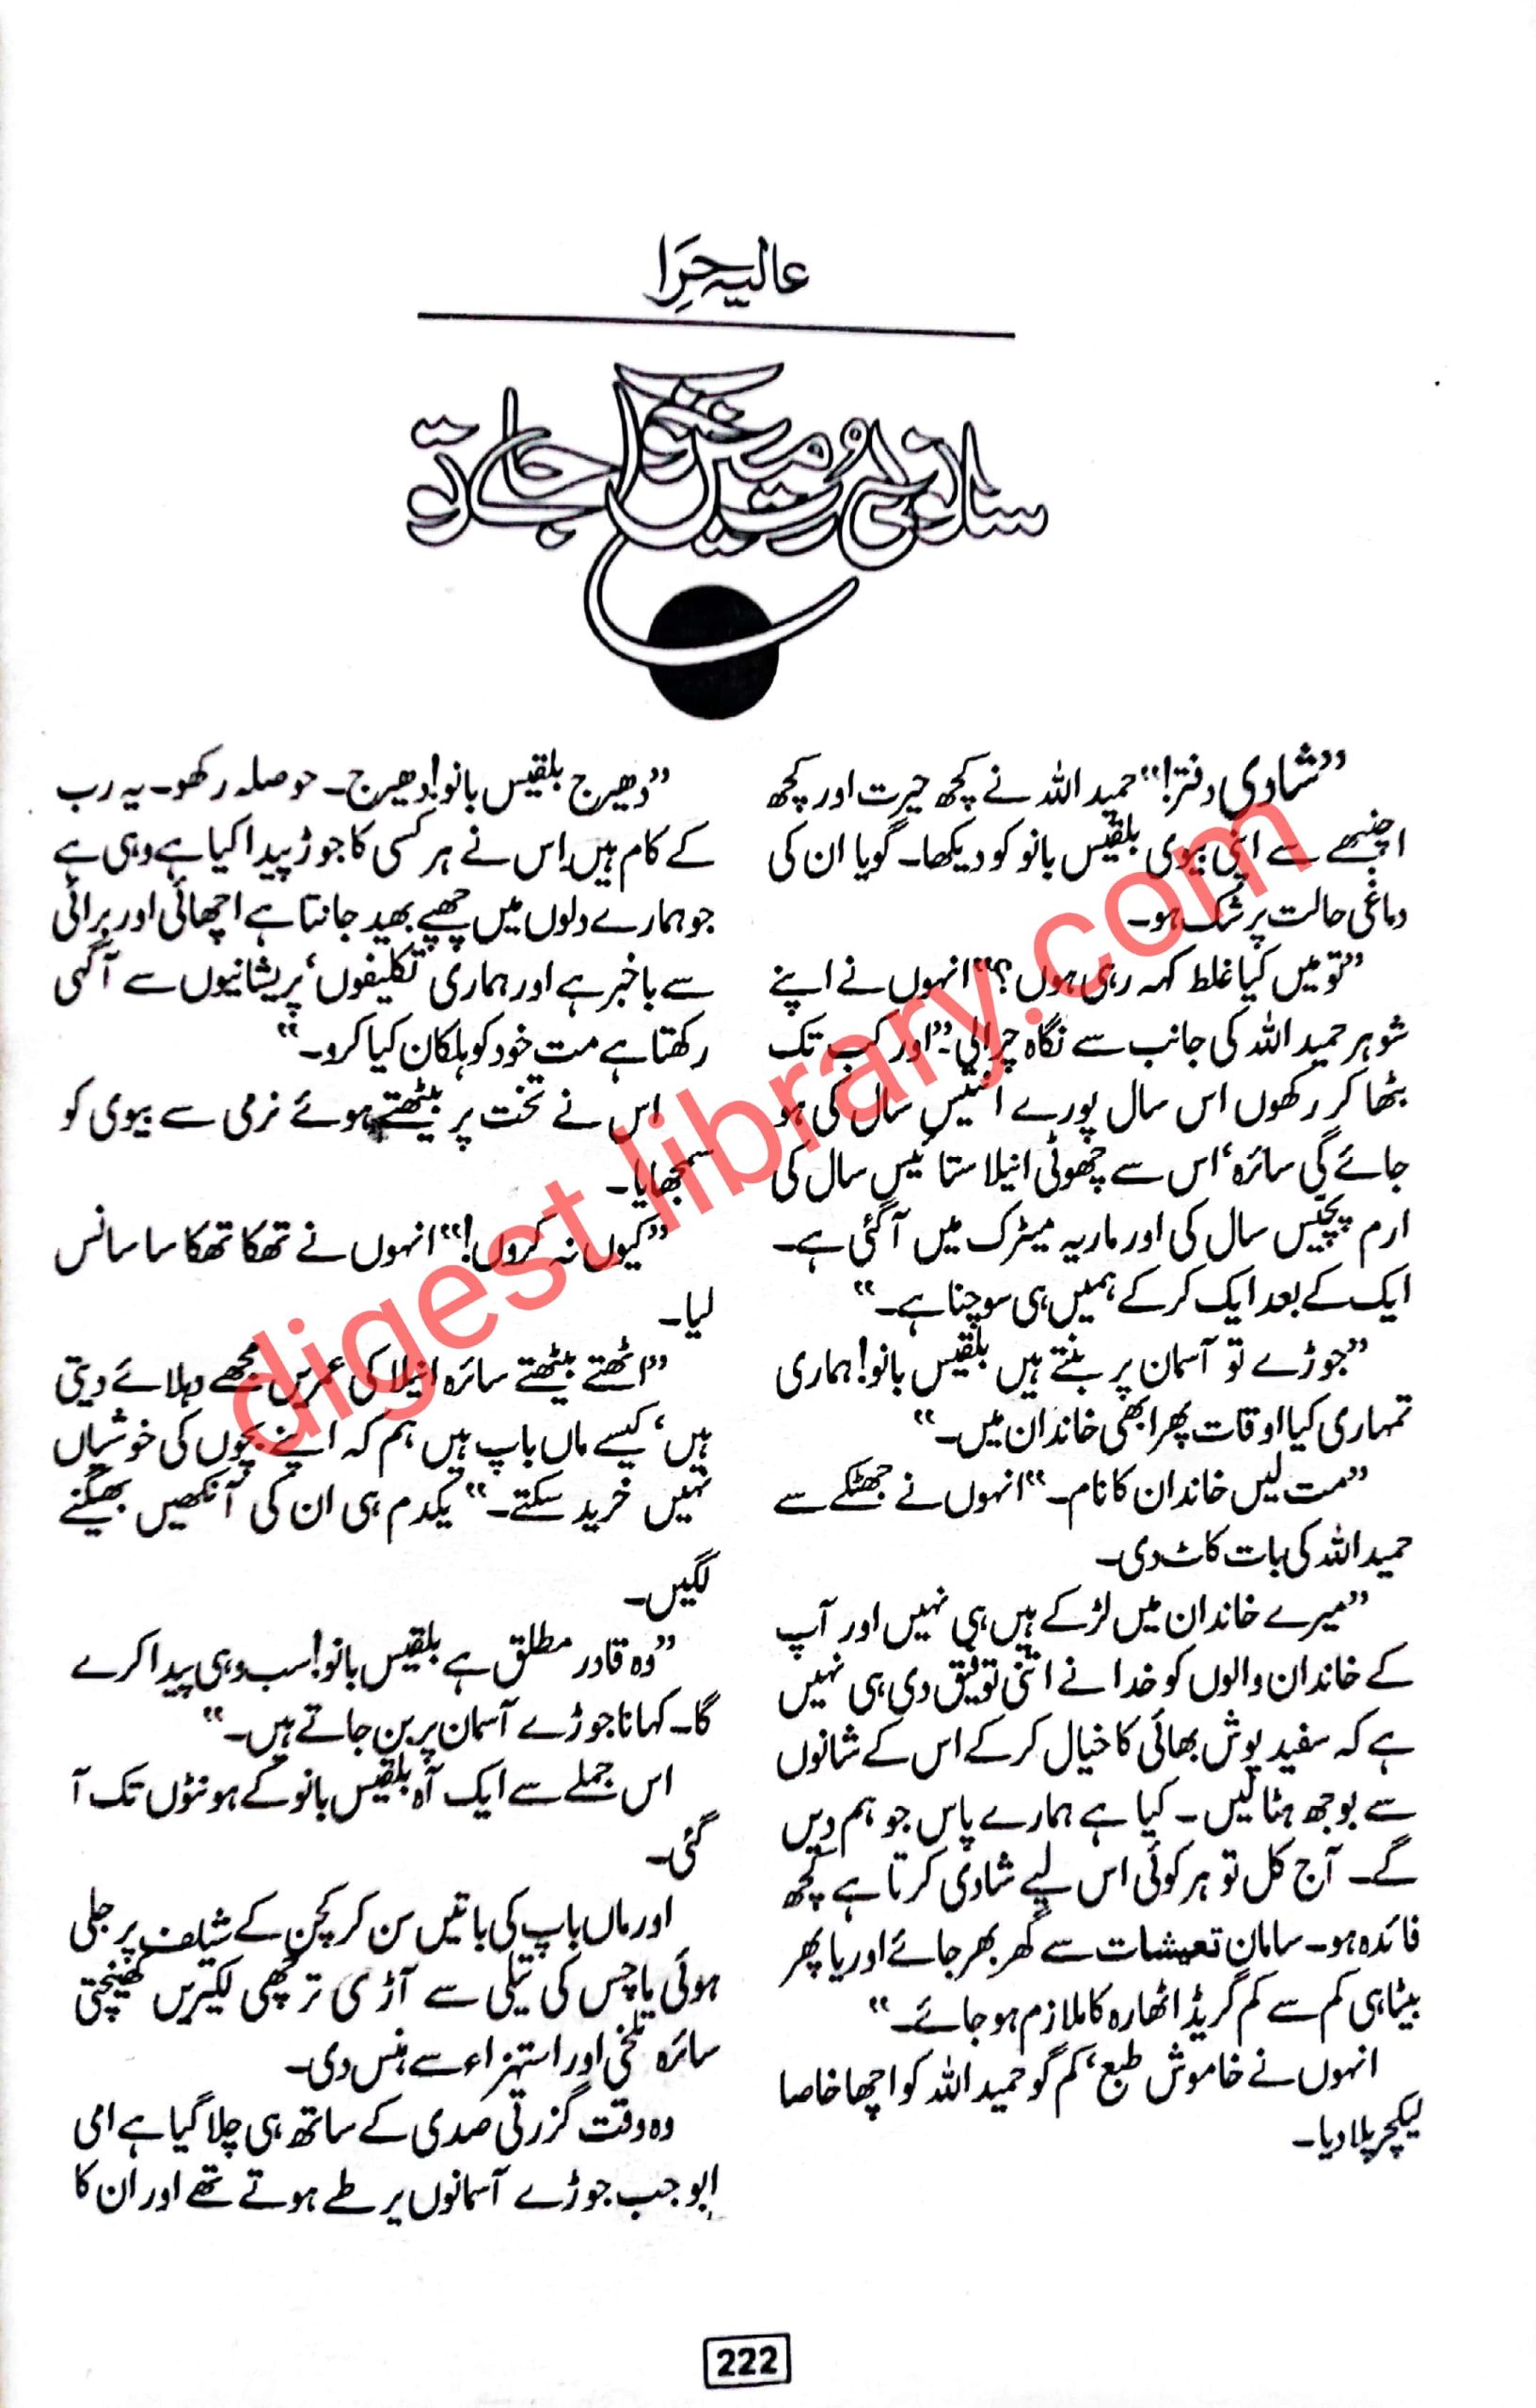 عالیہ حرا
سانولی رت میں گنگنا جائے تو
”شادی دفتر!“ حمید اللہ نے کچھ حیرت اور کچھ
اچنبھے سے اپنی بیوی بلقیس بانو کو دیکھا۔ گویا ان کی
دماغی حالت پر شک ہو۔
”تو میں کیا غلط کہہ رہی ہوں؟“ انہوں نے اپنے
شوہر حمید اللہ کی جانب سے نگاہ چرالی۔ ”اور کب تک
بٹھا کر رکھوں اس سال پورے انتیس سال کی ہو
جائے گی سائرہ‘ اس سے چھوٹی انیلا ستائیس سال کی
ارم پچیس سال کی اور ماریہ میٹرک میں آ گئی ہے۔
ایک کے بعد ایک کر کے ہمیں ہی سوچنا ہے۔“
”جوڑے تو آسمان پر بنتے ہیں بلقیس بانو! ہماری
تمہاری کیا اوقات پھر ابھی خاندان میں۔“
”مت لیں خاندان کا نام۔“ انہوں نے جھٹکے سے
حمید اللہ کی بات کاٹ دی۔
”میرے خاندان میں لڑکے ہیں ہی نہیں اور آپ
کے خاندان والوں کو خدا نے اتنی توفیق دی ہی نہیں
ہے کہ سفید پوش بھائی کا خیال کر کے اس کے شانوں
سے بوجھ ہٹا لیں۔ کیا ہے ہمارے پاس جو ہم دیں
گے۔ آج کل تو ہر کوئی اس لیے شادی کرتا ہے کچھ
فائدہ ہو۔ سامان تعیشات سے گھر بھر جائے اور یا پھر
بیٹا ہی کم سے کم گریڈ اٹھارہ کا ملازم ہو جائے۔“
انہوں نے خاموش طبع‘ کم گو حمید اللہ کو اچھا خاصا
لیکچر پلا دیا۔
”دھیرج بلقیس بانو! دھیرج۔ حوصلہ رکھو۔ یہ رب
کے کام ہیں اس نے ہر کسی کا جوڑ پیدا کیا ہے وہی ہے
جو ہمارے دلوں میں چھپے بھید جانتا ہے اچھائی اور برائی
سے باخبر ہے اور ہماری تکلیفوں‘ پریشانیوں سے آگہی
رکھتا ہے مت خود کو ہلکان کیا کرو۔“
اس نے تخت پر بیٹھتے ہوئے نرمی سے بیوی کو
سمجھایا۔
”کیوں نہ کروں!“ انہوں نے تھکا تھکا سا سانس
لیا۔
”اٹھتے بیٹھتے سائرہ انیلا کی عمریں مجھے دہلائے دیتی
ہیں‘ کیسے ماں باپ ہیں ہم کہ اپنے بچوں کی خوشیاں
نہیں خرید سکتے۔“ یکدم ہی ان کی آنکھیں بھیگنے
لگیں۔
”وہ قادر مطلق ہے بلقیس بانو! سب وہی پیدا کرے
گا۔ کہا نا جوڑے آسمان پر بن جاتے ہیں۔“
اس جملے سے ایک آہ بلقیس بانو کے ہونٹوں تک آ
گئی۔
اور ماں باپ کی باتیں سن کر کچن کے شیلف پر جلی
ہوئی ماچس کی تیلی سے آڑی ترچھی لکیریں کھینچتی
سائرہ تلخی اور استہزاء سے ہنس دی۔
وہ وقت گزرتی صدی کے ساتھ ہی چلا گیا ہے امی
ابو جب جوڑے آسمانوں پر طے ہوتے تھے اور ان کا
222
digest library.com